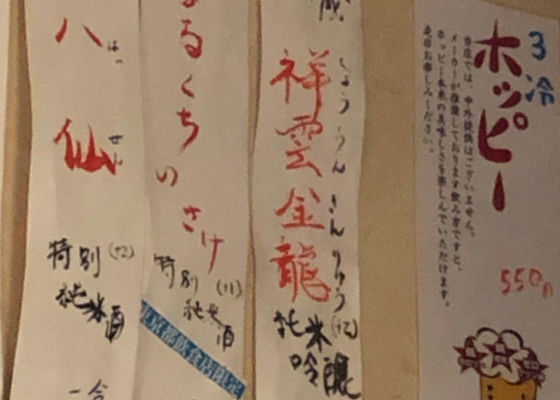 3冷
ホッピー
当店では、中外提供はございません。
メーカーが推奨しております飲み方ですと、
ホッピー本来の美味しさを楽しんでいただけます。
是非お楽しみください。
550円
祥雲金龍
しょううん きんりゅう
純米
吟醸
まるくちのさけ
特別
純米酒
東京都飲食店限定
八仙
はっせん
特別
純米酒
一合